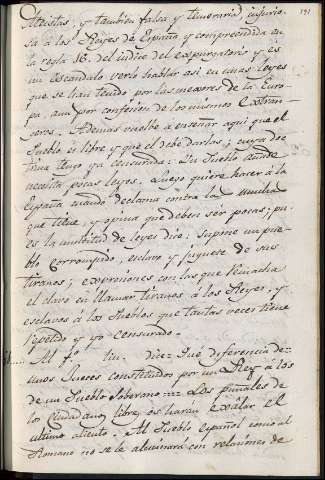 191
Ateistas, y tambien falsa y temeraria, injurio-
sa à los Reyes de España y comprendida en
la regla 16. del indice del expurgatorio y es
un escandalo verlo hablar asi en unas Leyes
que se han tenido por las mejores de la Euro-
pa, aun por confesion de los mismos Extran-
geros. Ademas vuelbe a enseñar aqui que el
Pueblo es libre y que el debe darlas; cuya doc-
trina tengo ya censurada: Un Pueblo dice
necesita pocas leyes. Luego quiere hacer à la
España quando declama contra la
que tiene, y opina que deben ser pocas; pu-
es la multitud de leyes dice: supone un pue-
blo corrompido, esclavo y juguete de sus
tiranos; expresiones con las que remacha
el clavo en llamar tiranos à los Reyes, y
esclavos à los Pueblos que tantas veces tiene
repetido y yo censurado.
Al fº dice Qué diferencia de
unos Jueces constituidos por un Rey a los
de un Pueblo Soberano Los puñales de
los Ciudadanos libres os harán exalar el
ultimo aliento. Al Pueblo español como al
Romano no se le alucinará con relaciones de